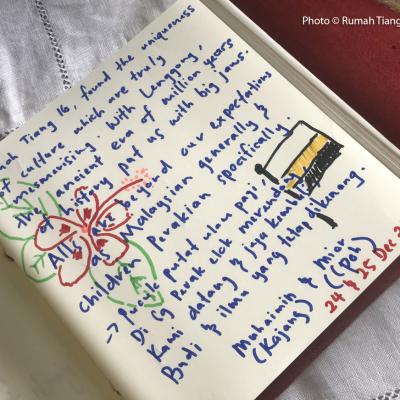 Photo © Rumah Tiang
ah Tiang 16, found the uniqueness
of culture which are truly
mesmerising. With Lenggong,
the ancient era of million years
of history put us with big jaws.
All's are beyond our expectations
as Malaysian generally &
children Perakian specifically.
→ Pucuk putat ulam pagi,
Di Lg Perak elok merandau
Kami datang & juga kembali
Budi & ilmu yang tetap dikenang.
Muhaimin & Mior
(Kajang) (Ipoh)
24 & 25 Dec 2